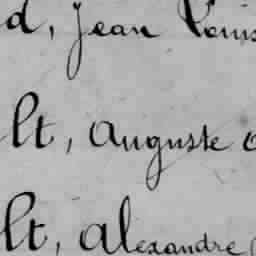 d, Jean Louis
lt, Auguste
lt, Alexandre